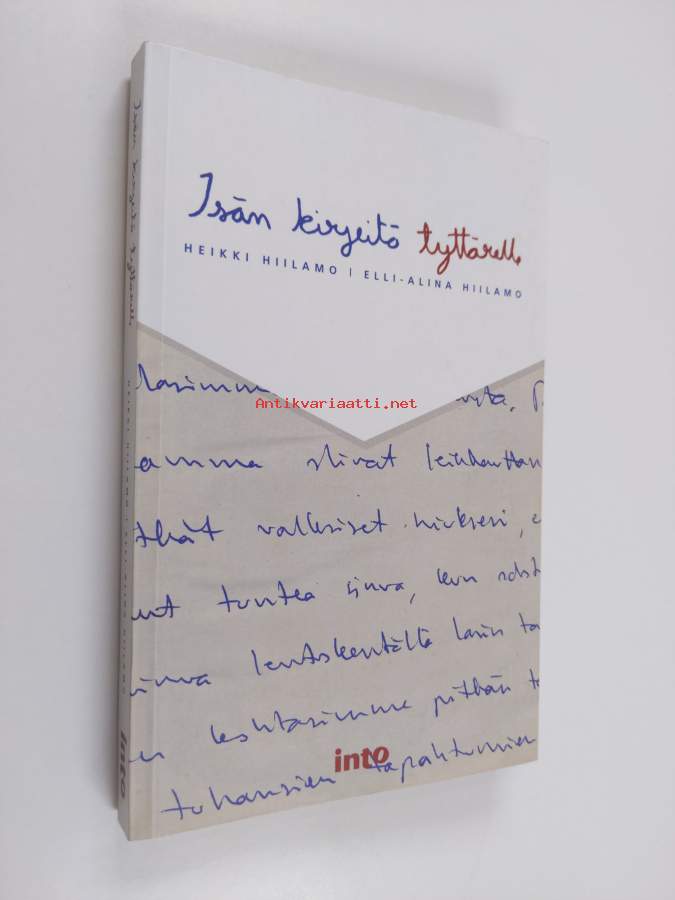 Isän kirjeitä tyttärelle
HEIKKI HIILAMO | ELLI-ALINA HIILAMO
Antikvariaatti.net
amma olivat leikkauttan
tkät valkeiset hiuksesi, e
unt tuntea sinua, kun odot
inua lentokentällä lasin ta
en kohtasimme pitkän t
into
tuhansien tapahtumien
Isän kirjeitä tyttärelle
HEIKKI HIILAMO | ELLI-ALINA HIILAMO
into